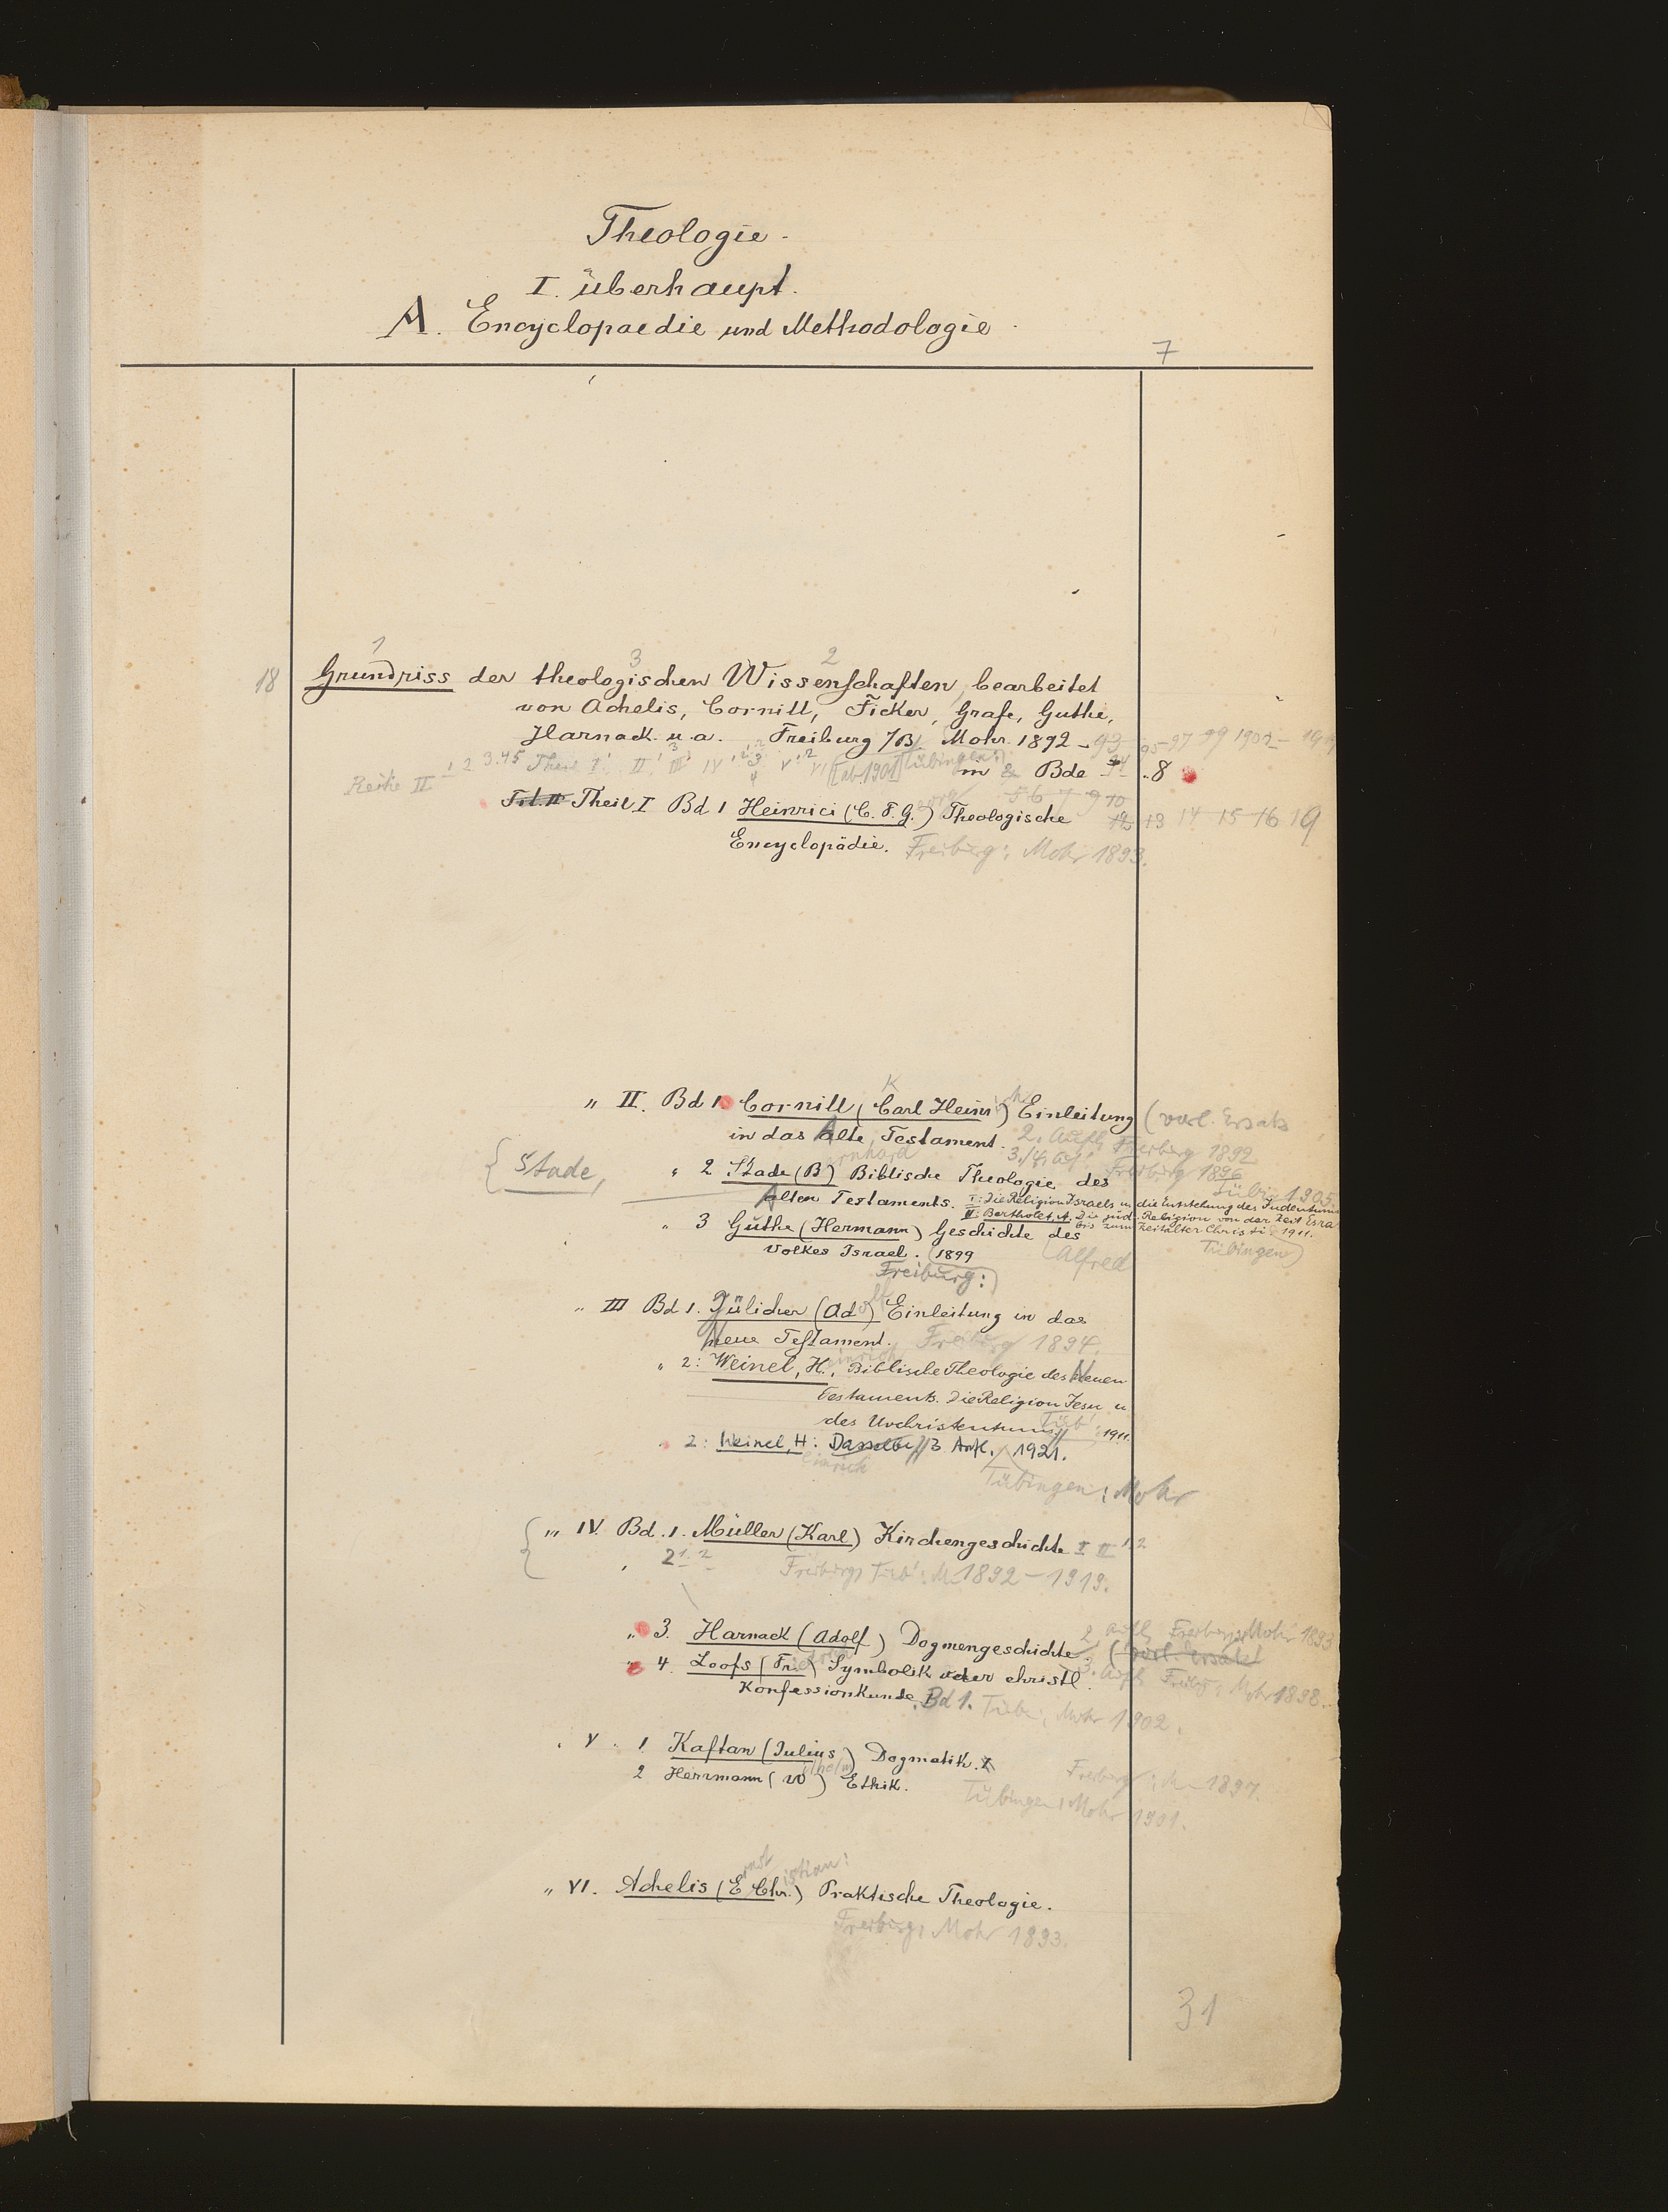 Theologie.
I. überhaupt.
A. Encyclopaedie und Methodologie.
7
1 3 2
18 Grundriss der theologischen Wissenschaften, bearbeitet
von Achelis, Cornill, Ficker, Grafe, Guthe,
Harnack u. a. Freiburg /B. Mohr. 1892 - 93 95-97 99 1902 -
Reihe II 1 2 3. 4 5 Theil I II III IV V VI [ab 1901] Tübingen: in Bde 8
5 6 7 9 10
Theil I Bd 1 Heinrici (C. F. G.) Theologische 12 13 14 15 16 19
Encyclopädie. Freiburg: Mohr 1893.
" II. Bd 1. Cornill (Carl Heinr) Einleitung (vorl. Ersatz
in das Alte Testament. 2. Aufl. Freiburg 1892
3./4. Aufl. Freiburg 1896
{ Stade, " 2 Stade (Bernhard) Biblische Theologie des Tübi 1905
Alten Testaments. I: Die Religion Israels u die Entstehung des Judentums
II: Bertholet A. Die jüd. Religion von der Zeit Esra
bis zum Zeitalter Christi 1911.
" 3 Guthe (Hermann) Geschichte des
Volkes Israel. (1899 (Alfred Tübingen)
Freiburg:)
" III Bd 1. Jülicher (Adolf) Einleitung in das
Neue Testament. Freiburg 1894.
" 2: Weinel, Heinrich, Biblische Theologie des Neuen
Testaments. Die Religion Jesu u
des Urchristentums Tüb: 1911.
" 2: Weinel, Heinrich: Dasselbe // 3 Aufl. 1921.
Tübingen: Mohr
{ " IV. Bd. 1. Müller (Karl) Kirchengeschichte I II 1.2
" 2 1. 2 Freiburg, Tüb: M. 1892-1919.
" 3. Harnack (Adolf) Dogmengeschichte. 2. Aufl. Freiburg: Mohr 1893
(vorl. Ersatz)
" 4. Loofs (Friedrich) Symbolik oder christl. 3. Aufl. Freibg: Mohr 1898.
Konfessionkunde. Bd 1. Tüb: Mohr 1902.
" V. 1 Kaftan (Julius) Dogmatik. Freiburg: M 1897.
2 Herrmann (Wilhelm) Ethik. Tübingen: Mohr 1901.
" VI. Achelis (Ernst Christian:) Praktische Theologie.
Freiburg: Mohr 1893.
31